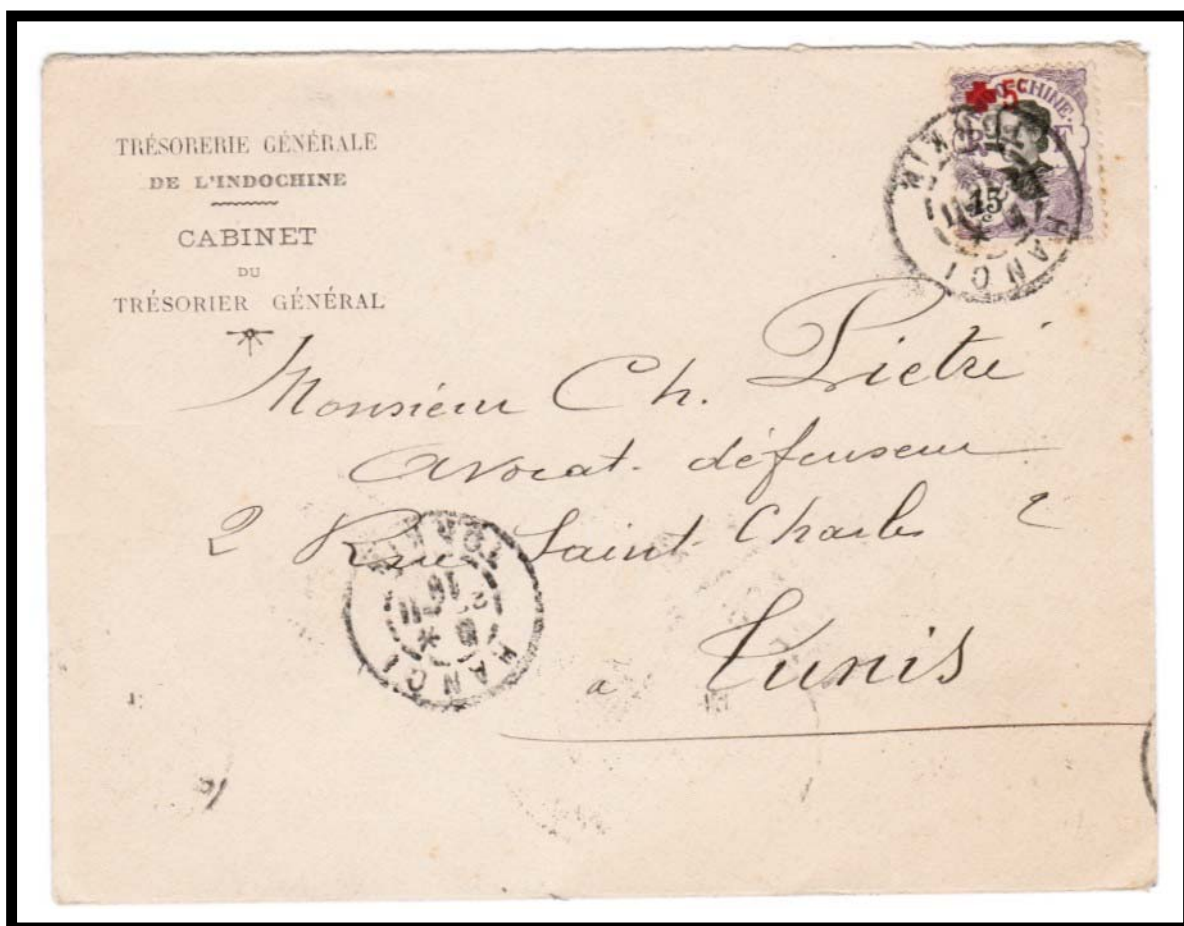 TRÉSORERIE GÉNÉRALE
DE L'INDOCHINE
CABINET
DU
TRÉSORIER GÉNÉRAL
5c
INDOCHINE
15
HANOI
TONKIN
Monsieur Ch. Pietri
Avocat-défenseur
2 Rue Saint-Charles 2
a Tunis
HANOI
TONKIN